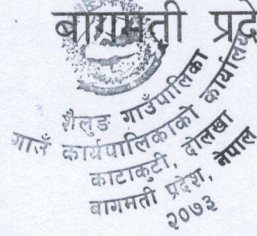 बागमती प्रदे
शैलुङ गाउँपालिका
गाउँ कार्यपालिकाको कार्यालय
काटाकुटी, दोलखा
बागमती प्रदेश, नेपाल
२०७३